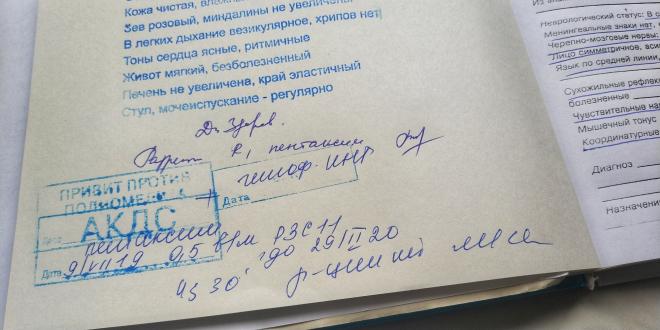 Кожа чистая, влажн
Зев розовый, миндалины не увеличены
В легких дыхание везикулярное, хрипов нет
Тоны сердца ясные, ритмичные
Живот мягкий, безболезненный
Печень не увеличена, край эластичный
Стул, мочеиспускание - регулярно
Ds Здоров.
пентаксим
ПРИВИТ ПРОТИВ
ПОЛИОМЕЛИ
АКДС
Дата
Дата
Дата
пентаксим
9/VII 19 0,5 в/м R3C11
до 29/II 20
Неврологический статус: В с
Менингеальные знаки нет,
Черепно-мозговые нервы:
Лицо симметричное, аси
Язык по средней линии,
Сухожильные рефлек
болезненные
Чувствительные на
Мышечный тонус
Координаторные
Диагноз
Назначени